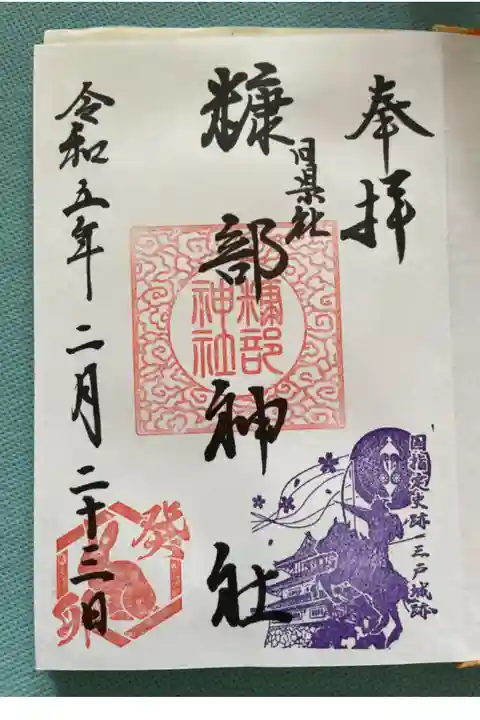 奉拝
旧県社
糠部神社
令和五年二月二十三日
糠部
神社
国指定史跡 三戸城跡
癸
卯